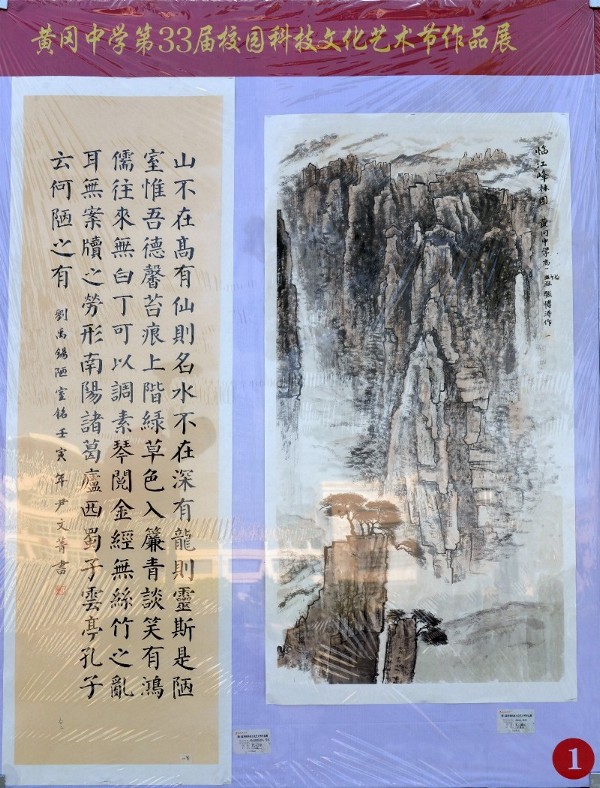 黄冈中学第33届校园科技文化艺术节作品展
山不在髙有仙則名水不在深有龍則靈斯是陋
室惟吾德馨苔痕上階緑草色入簾青談笑有鴻
儒往來無白丁可以調素琴閲金經無絲竹之亂
耳無案牘之勞形南陽諸葛廬西蜀子雲亭孔子
云何陋之有
劉禹錫陋室銘壬寅年尹文菁書
臨江峰林图 黄冈中学高
作
1